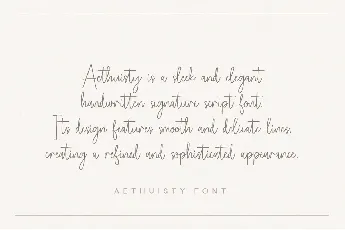 Aethuisty is a sleek and elegant
handwritten signature script font.
It's design features smooth and delicate lines,
creating a refined and sophisticated appearance.
AETHUISTY FONT